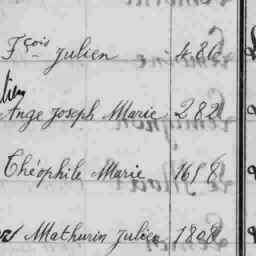 Fçois Julien 486
Ange Joseph Marie 282
Théophile Marie 1658
Mathurin Julien 1808